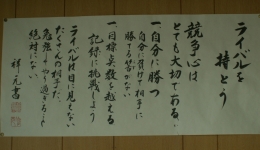 ライバルを
持とう
競争心は
とても大切である
一、自分に勝つ
自分に負けて相手に
勝てる筈がない
一、目標点数を越える
記録に挑戦しよう
ライバルは目に見えない
たくさんの相手だ
勉強しすぎやり過ぎると
絶対にない
祥元書